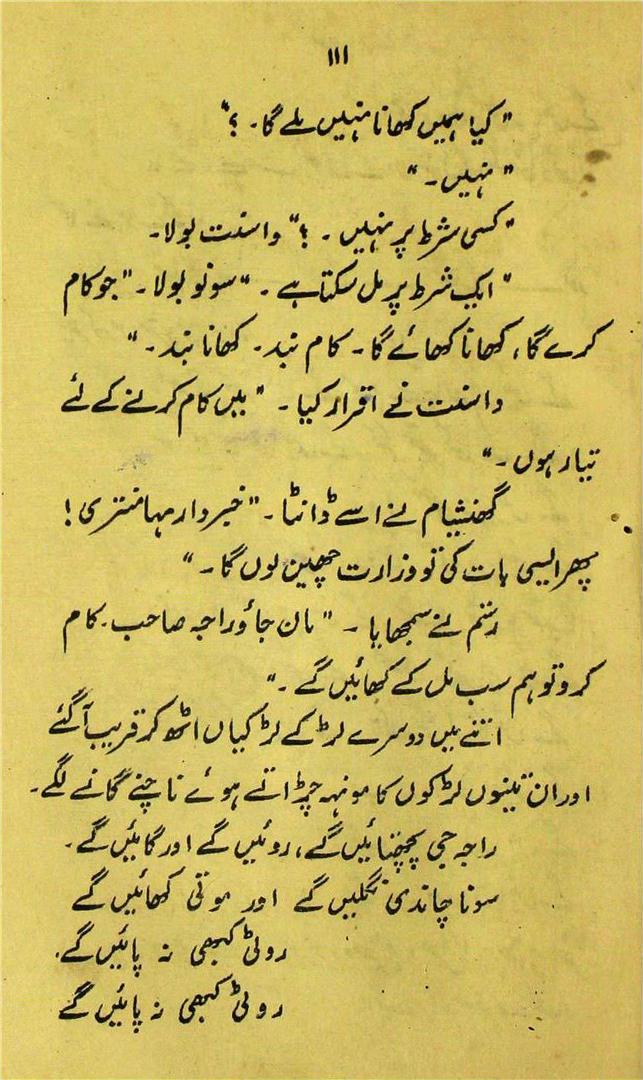 ۱۱۱
"کیا ہمیں کھانا نہیں ملے گا۔ ؟"
"نہیں۔"
"کسی شرط پر نہیں ۔ ؟" واسنت بولا۔
"ایک شرط پر مل سکتا ہے ۔" سونو بولا۔ "جو کام
کرے گا، کھانا کھائے گا۔ کام بند۔ کھانا بند۔"
واسنت نے اقرار کیا۔ "میں کام کرنے کے لئے
تیار ہوں۔"
گھنشیام نے اسے ڈانٹا۔ "خبردار مہامنتری!
پھر ایسی بات کی تو وزارت چھین لوں گا۔"
رستم نے سمجھایا ۔ "مان جاؤ راجہ صاحب۔ کام
کرو تو ہم سب مل کے کھائیں گے ۔"
اتنے میں دوسرے لڑکے لڑکیاں اٹھ کر قریب آ گئے
اور ان تینوں لڑکوں کا مونہہ چڑاتے ہوئے ناچنے گانے لگے۔
راجہ جی پچھتائیں گے، روئیں گے اور گائیں گے۔
سونا چاندی نگلیں گے اور موتی کھائیں گے
روٹی کبھی نہ پائیں گے۔
روٹی کبھی نہ پائیں گے